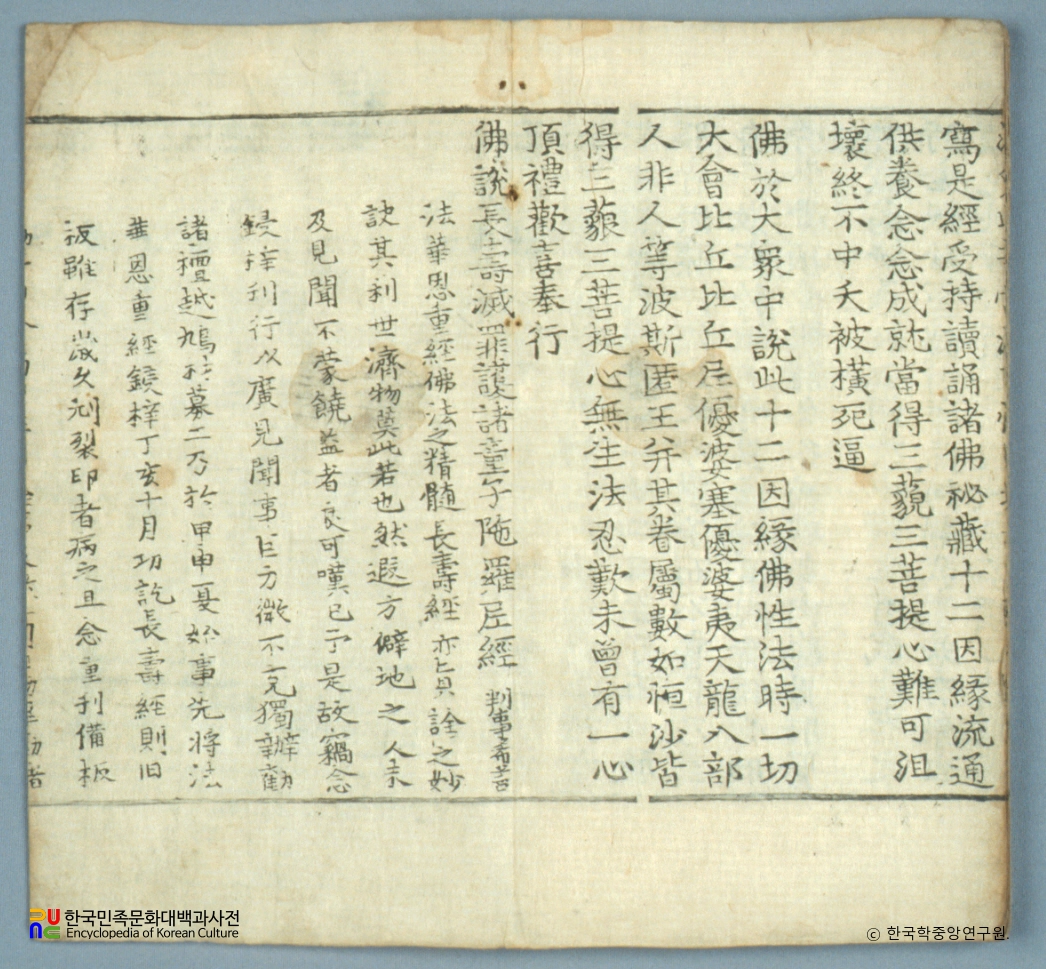 寫是經受持讀誦諸佛祕藏十二因緣流通
供養念念成就當得三藐三菩提心難可沮
壞終不中夭被橫死逼
佛於大衆中說此十二因緣佛性法時一切
大會比丘比丘尼優婆塞優婆夷天龍八部
人非人等波斯匿王并其眷屬數如恒沙皆
得三藐三菩提心無生法忍歎未曾有一心
頂禮歡喜奉行
佛說長壽滅罪護諸童子陁羅尼經 判事希
法華恩重經佛法之精髓長壽經亦其詮之妙
訣其利世濟物莫此若也然遐方僻地之人未
及見聞不蒙饒益者良可嘆已于是故竊念
鋟梓刊行以廣見聞事巨力微不克獨辦勸
諸檀越鳩財募工乃於甲申夏始事先將法
華恩重經鋟梓丁亥十月功訖長壽經則旧
板雖存歲久刓裂印者病之且念重刊備板
한국민족문화대백과사전
Encyclopedia of Korean Culture
ⓒ 한국학중앙연구원.